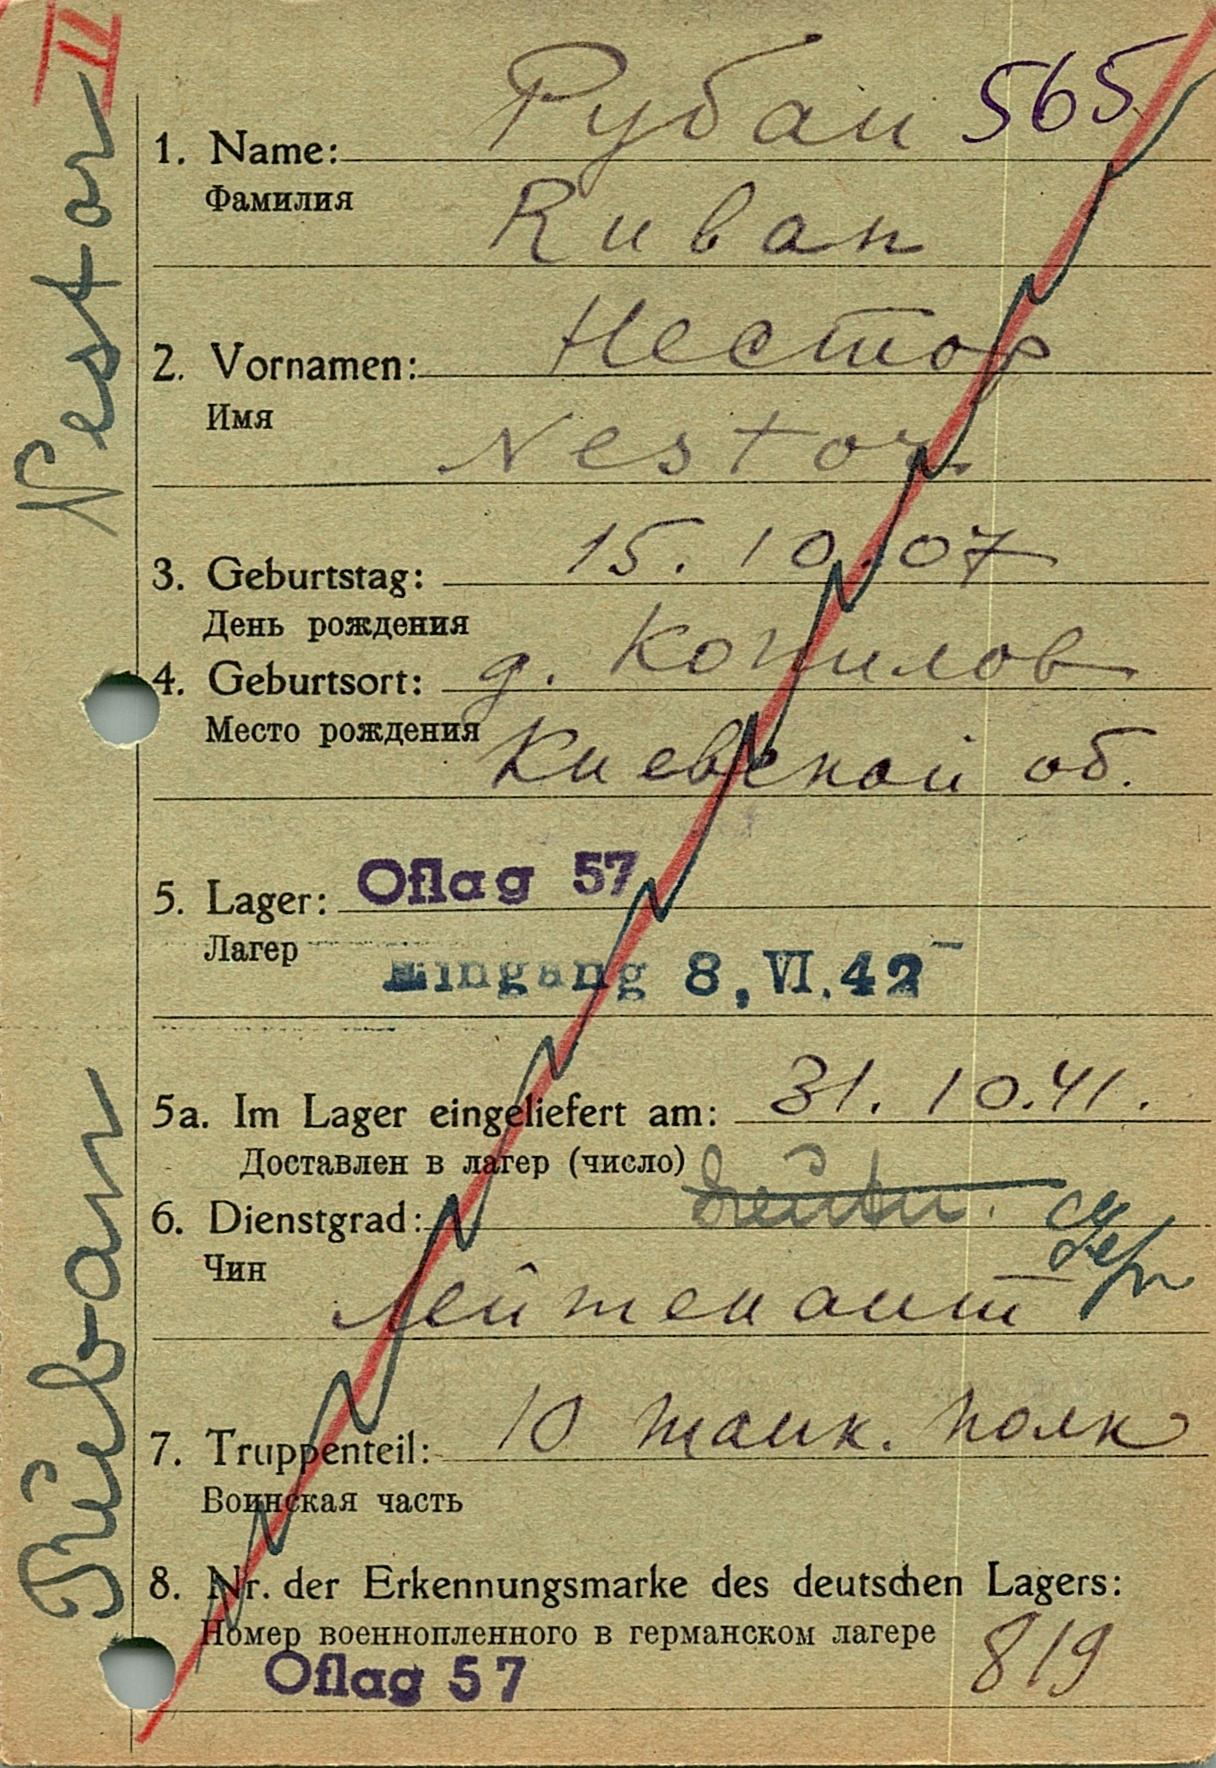 II
Рубан 565
1. Name:
Фамилия
Ruban
Нестор
2. Vornamen:
Имя
Nestor
15.10.07
3. Geburtstag:
День рождения
д. Копилов
4. Geburtsort:
Место рождения
Киевской об.
Oflag 57
5. Lager:
Лагер
Eingang 8, VI. 42
5a. Im Lager eingeliefert am: 31.10.41.
Доставлен в лагер (число)
6. Dienstgrad:
Чин
Лейтенант
10 танк. полк
7. Truppenteil:
Воинская часть
8. Nr. der Erkennungsmarke des deutschen Lagers:
Номер военнопленного в германском лагере
819
Oflag 57
Ruban Nestor